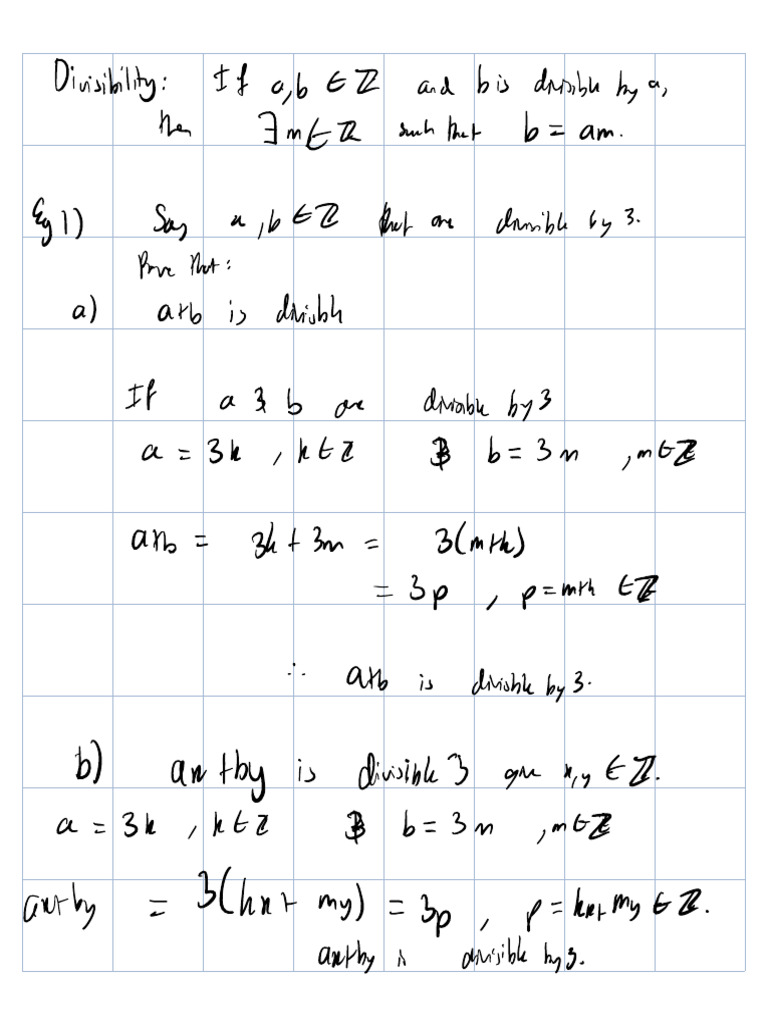 Divisibility: If a,b ∈ ℤ and b is divisible by a,
then ∃ m ∈ ℤ such that b = am.
Eg 1) Say a,b ∈ ℤ that are divisible by 3.
Prove that:
a) a+b is divisible
If a & b are divisible by 3
a = 3k , k ∈ ℤ & b = 3m , m ∈ ℤ
a+b = 3k + 3m = 3(m+k)
= 3p , p = m+k ∈ ℤ
∴ a+b is divisible by 3.
b) ax+by is divisible 3 given x,y ∈ ℤ.
a = 3k , k ∈ ℤ & b = 3m , m ∈ ℤ
ax+by = 3(kx + my) = 3p , p = kx+my ∈ ℤ.
ax+by is divisible by 3.